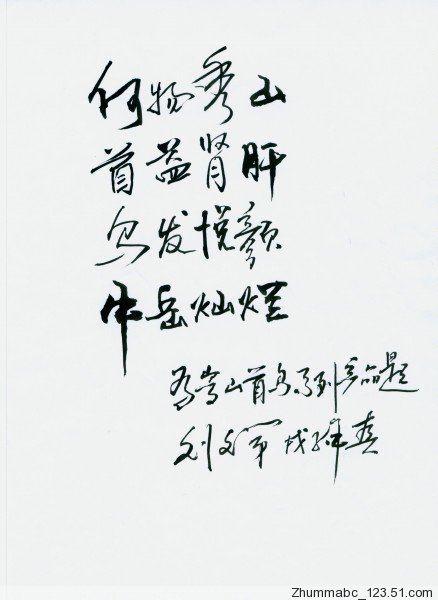 何物秀山
首益肾肝
乌发悦颜
中岳灿烂
为嵩山首乌系列产品题
刘文军 戊子年
Zhummabc_123.51.com